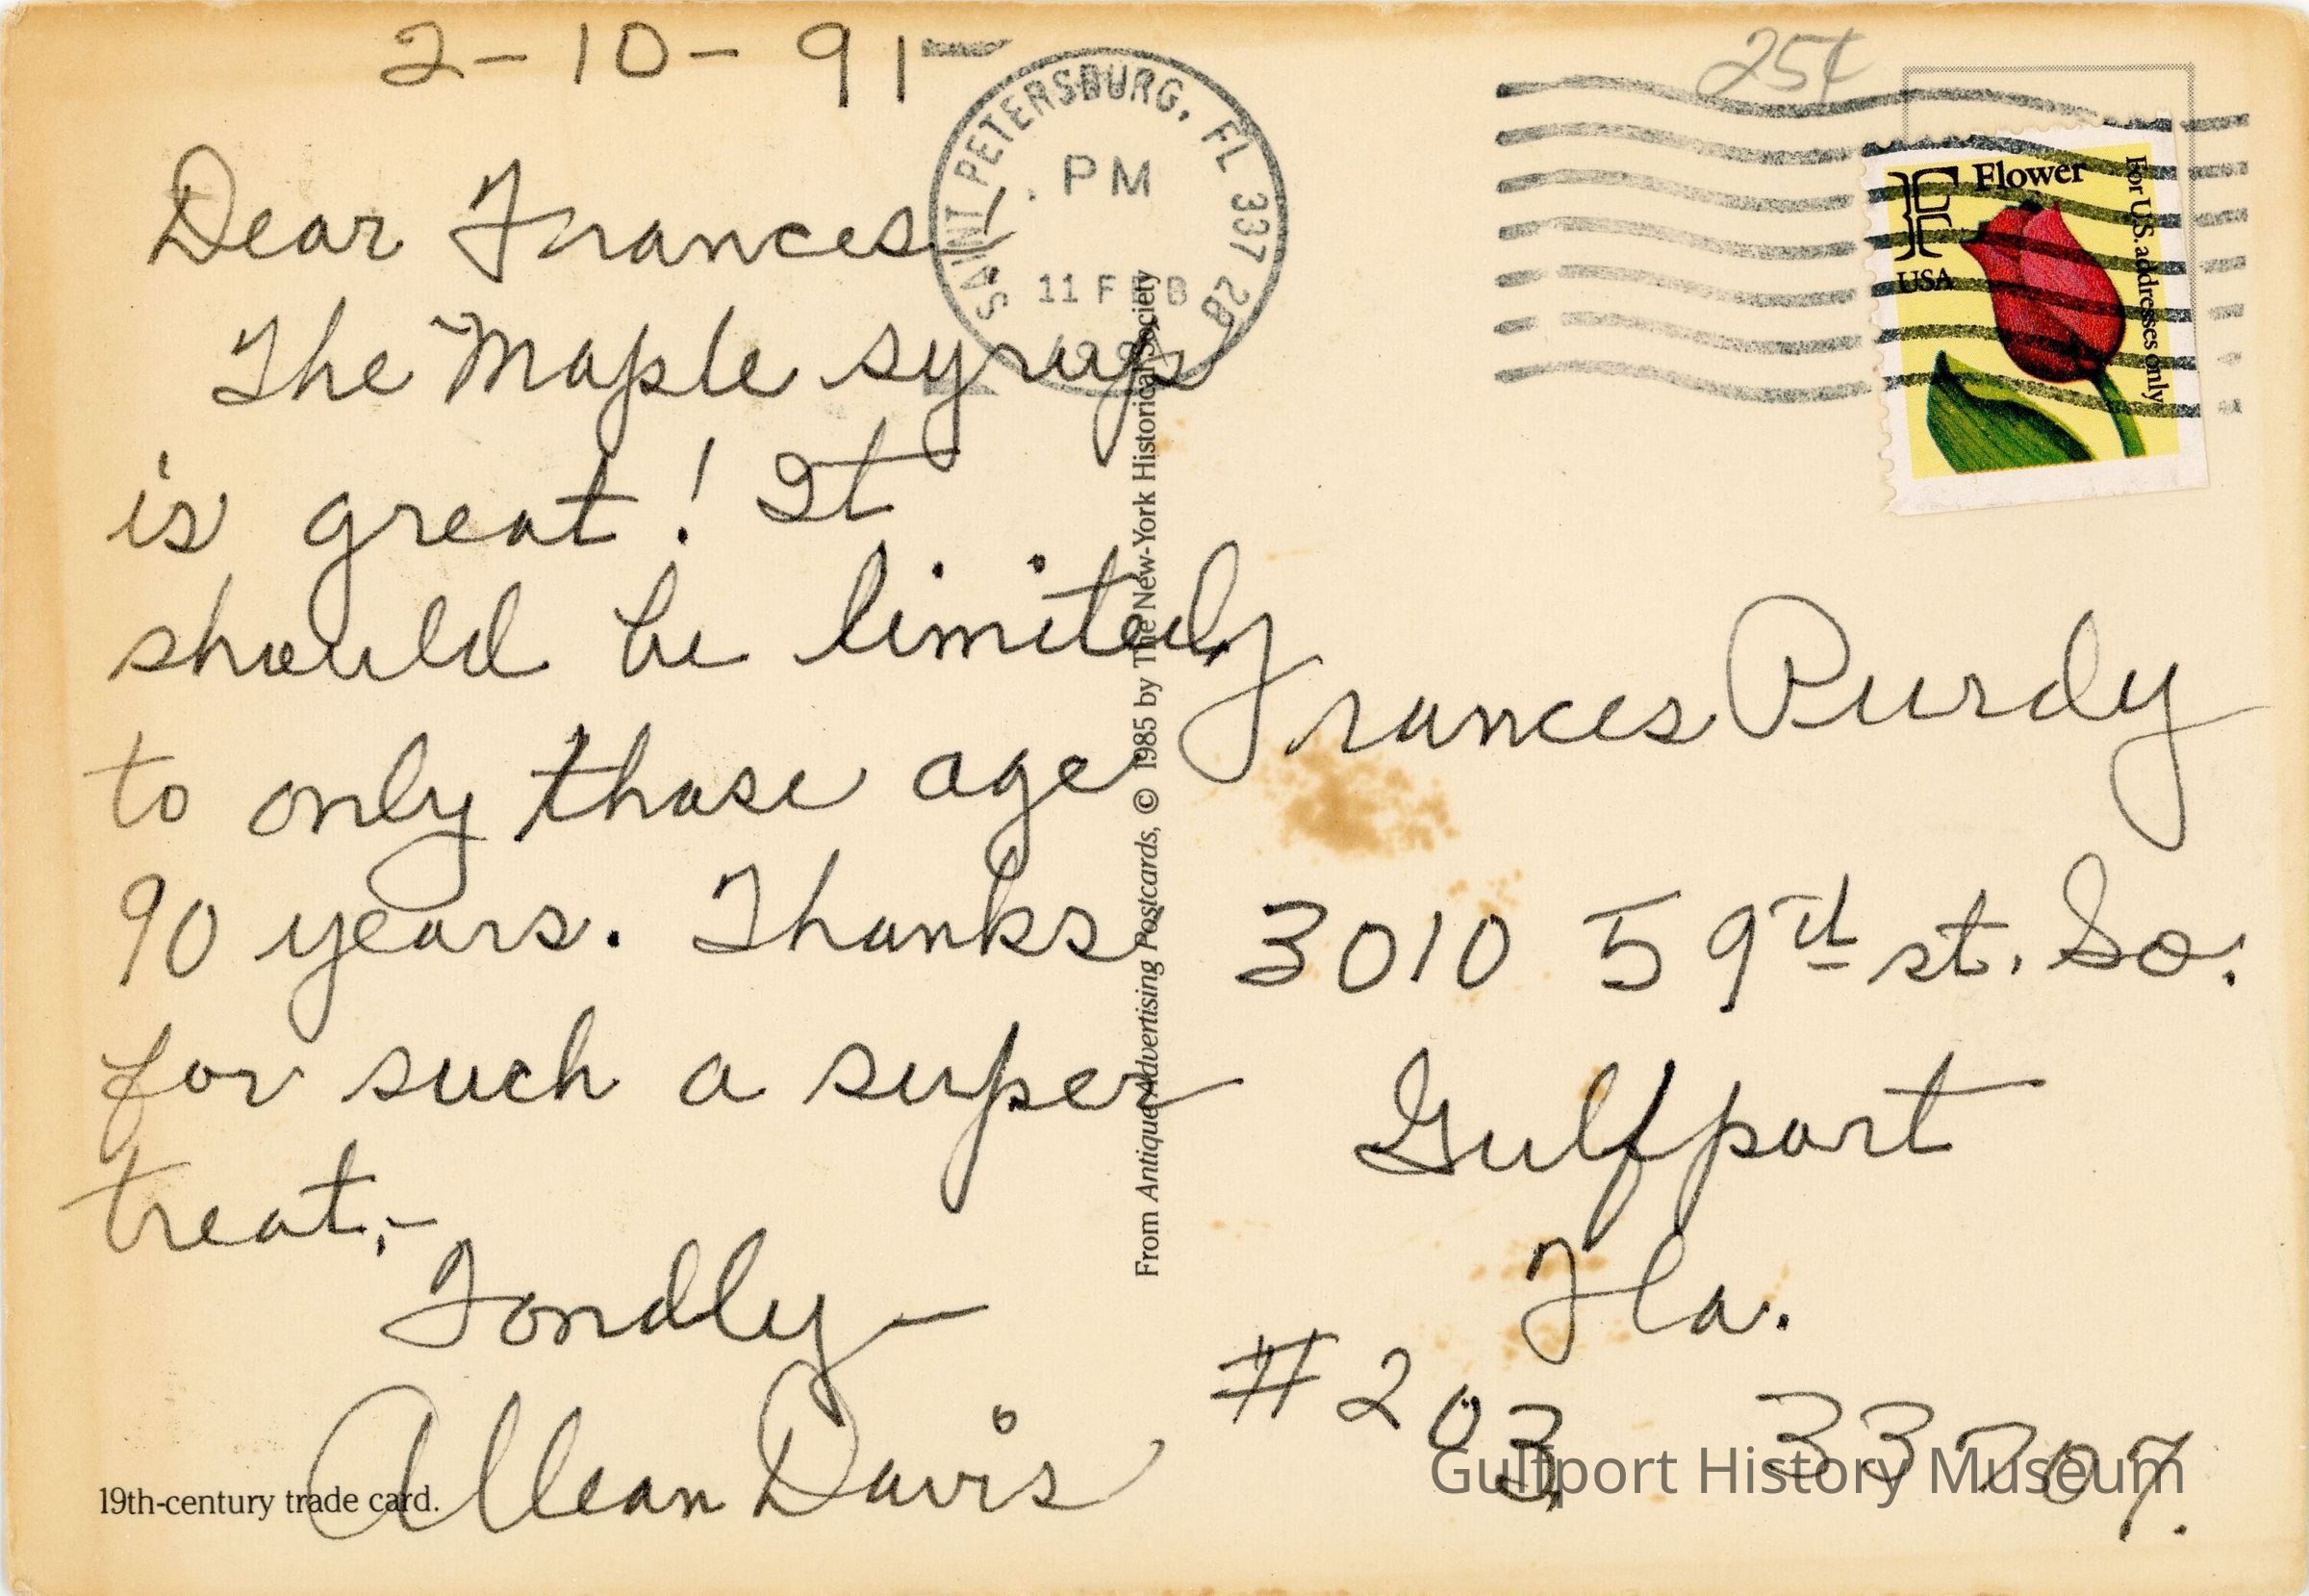 2-10-91-
Dear Frances!
The Maple syrup
is great! It
should be limited,
to only those age
90 years. Thanks
for such a super
treat,-
Fondly—
Allean Davis
19th-century trade card.
SAINT PETERSBURG, FL 337 28
PM
11 FEB
From Antique Advertising Postcards, © 1985 by The New-York Historical Society
25¢
F Flower
USA
For U.S. addresses only
Frances Purdy
3010 59th st. So.
Gulfport
Fla.
#203 33707.
Gulfport History Museum